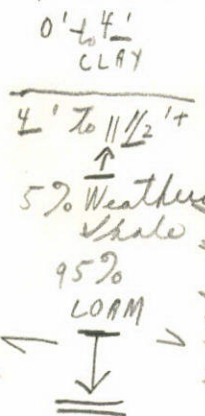 0' to 4'
CLAY
4' to 11 1/2'+
5% Weathere
Shale
95%
LOAM